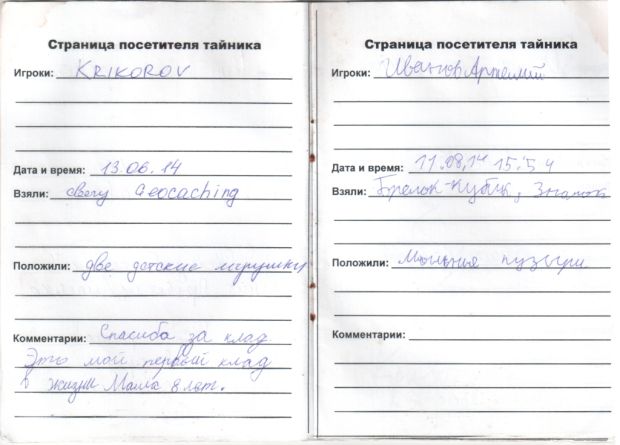 Страница посетителя тайника
Игроки: KRIKOROV
Дата и время: 13.06.14
Взяли: свечу Geocaching
Положили: две детские игрушки
Комментарии: Спасиба за клад
Это мой первый клад
в жизни Мама 8 лет.
Страница посетителя тайника
Игроки: Иванов Артемий
Дата и время: 11.08.14 15:54
Взяли: Брелок-кубик, Значок
Положили: Мыльные пузыри
Комментарии: